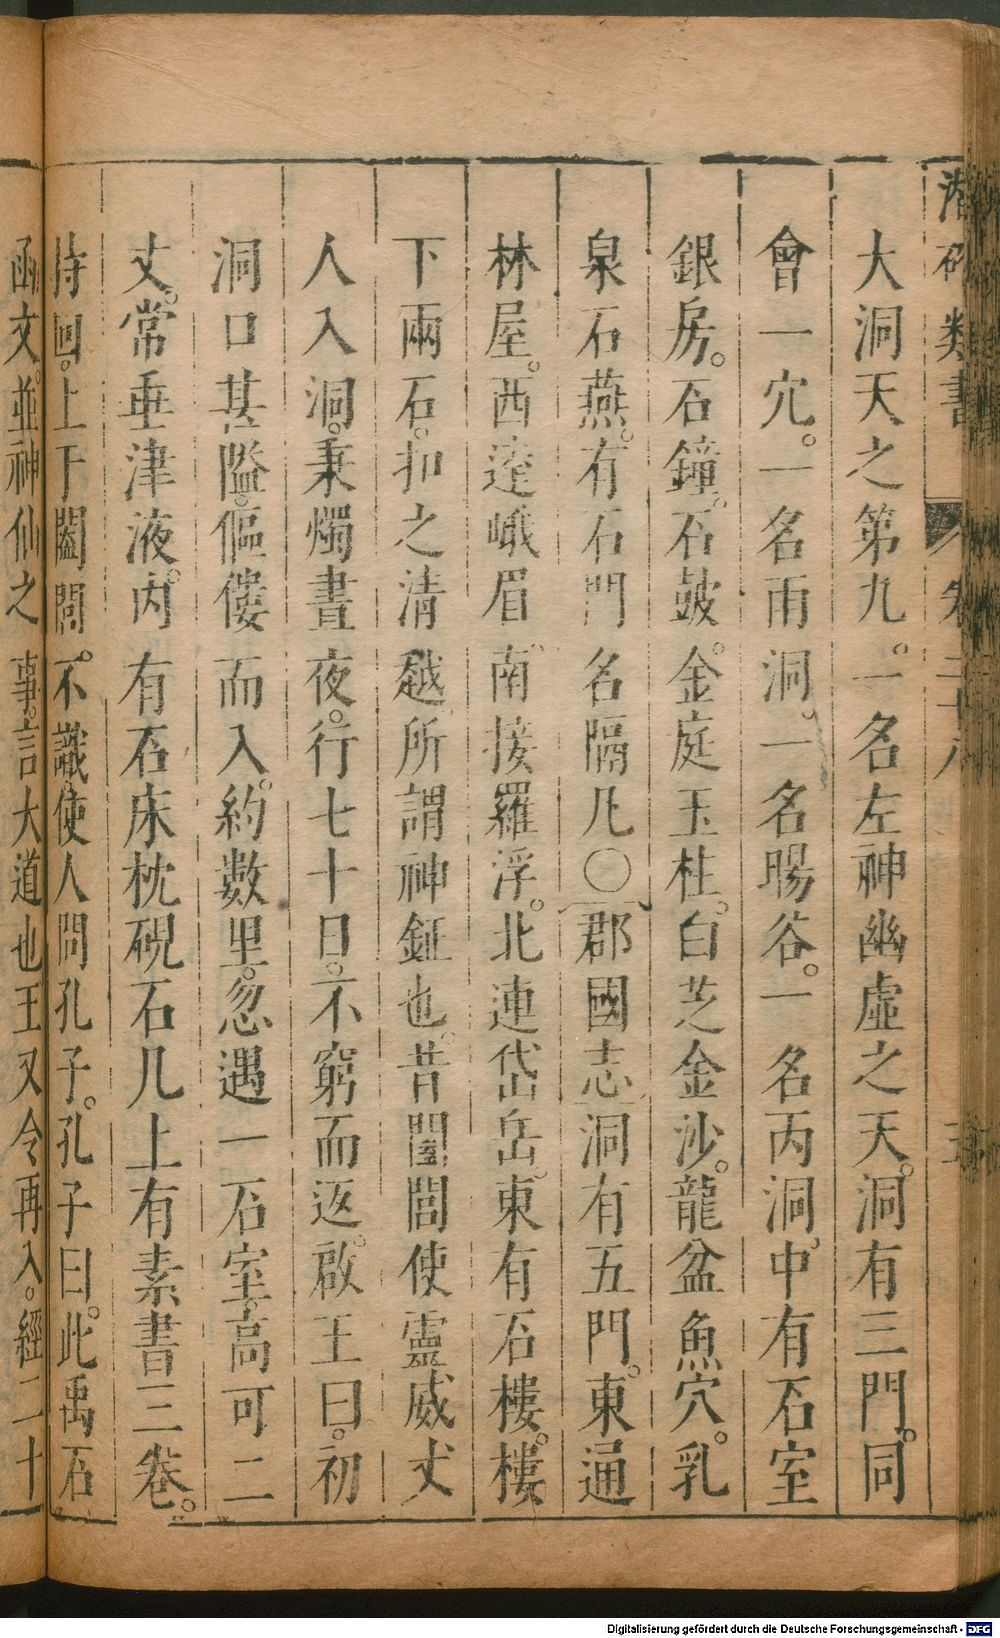 潛確類書 卷二十八 五
大洞天之第九。一名左神幽虛之天。洞有三門。同
會一穴。一名雨洞。一名暘谷。一名丙洞。中有石室
銀房。石鐘。石鼓。金庭玉柱。白芝金沙。龍盆魚穴。乳
泉石燕。有石門名隔凡〇郡國志洞有五門。東通
林屋。西達峨眉。南接羅浮。北連岱岳。東有石樓。樓
下兩石。扣之清越所謂神鉦也。昔闔閭使靈威丈
人入洞。秉燭晝夜。行七十日。不窮而返。啟王曰。初
洞口甚隘。傴僂而入。約數里。忽遇一石室。高可二
丈。常垂津液。內有石床枕硯石几上有素書三卷。
持回。上于闔閭。不識使人問孔子。孔子曰。此禹石
函文。並神仙之事。言大道也。王又令再入。經二十
Digitalisierung gefördert durch die Deutsche Forschungsgemeinschaft - DFG